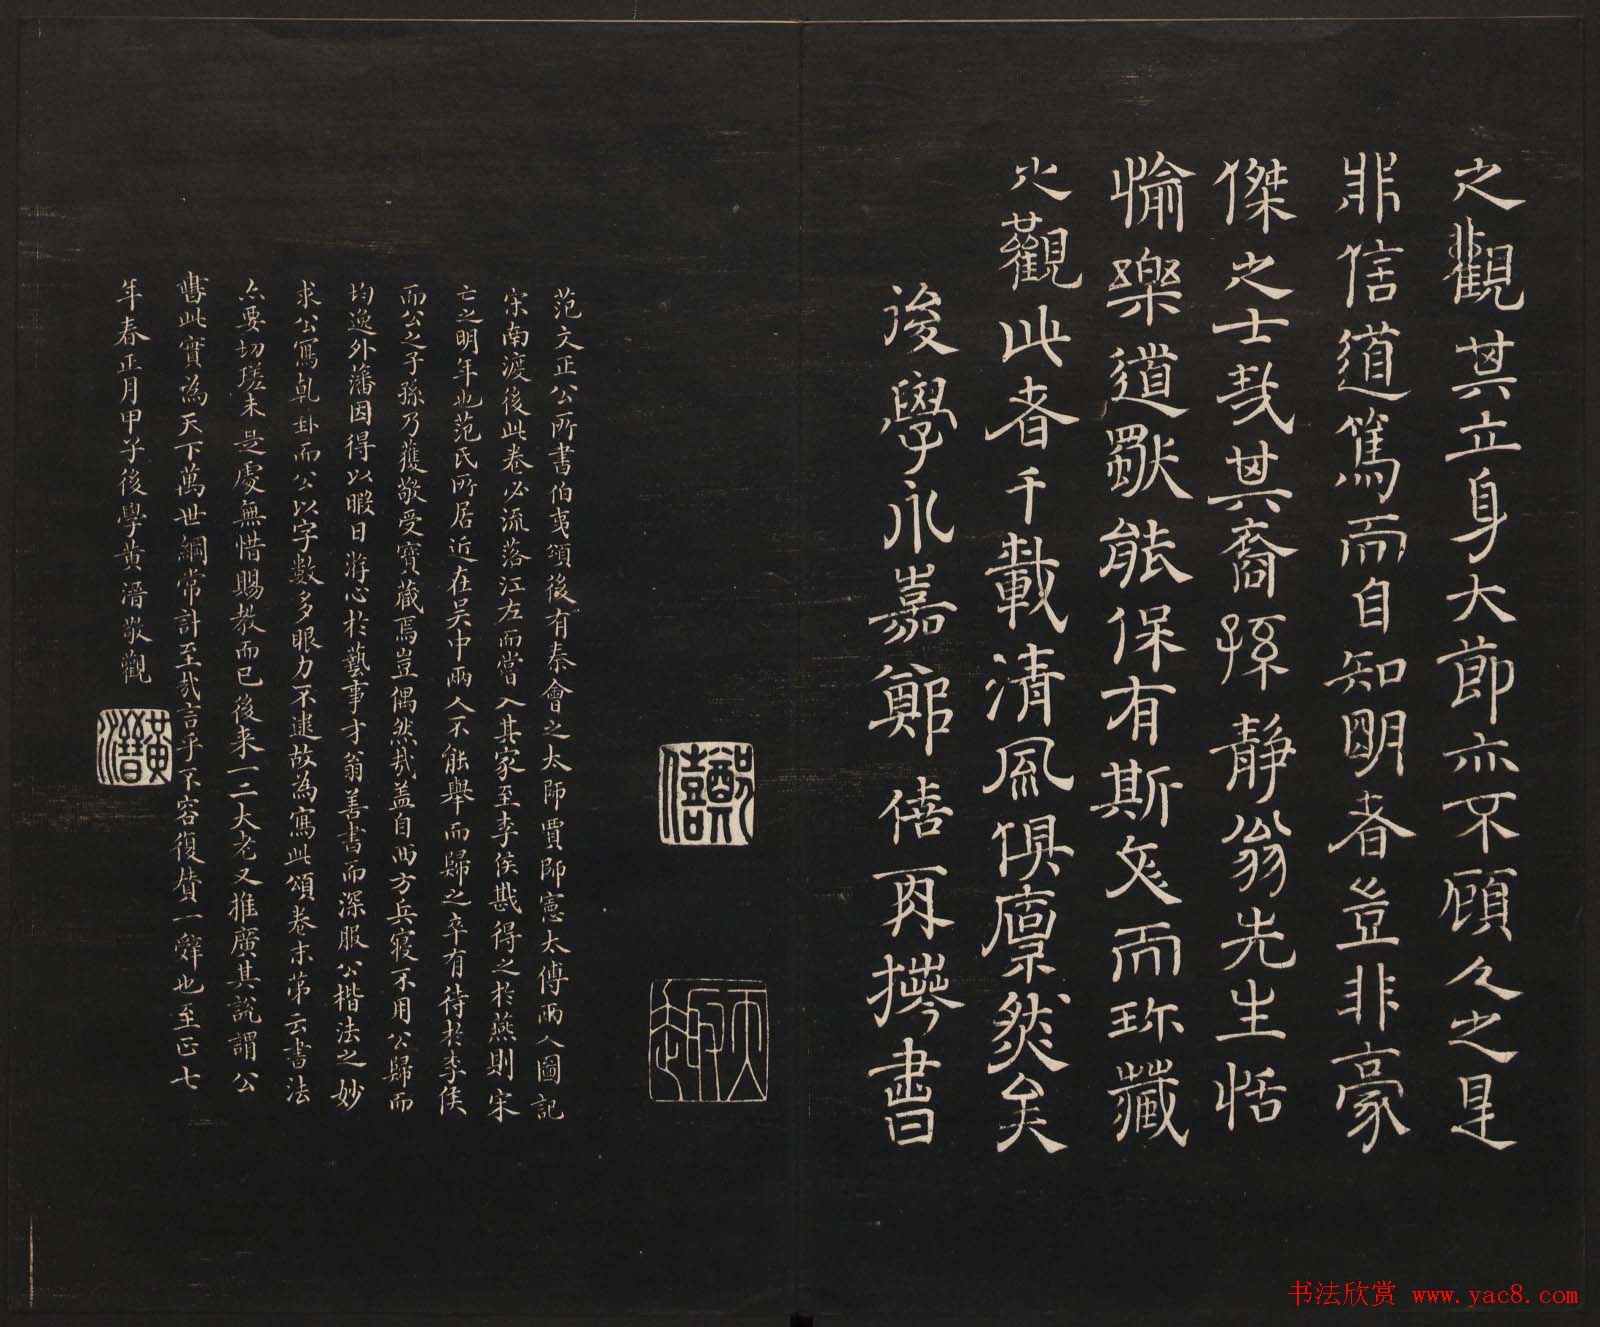 之觀其立身大節亦不顧人之是
非信道篤而自知明者豈非豪
傑之士哉其裔孫靜翁先生恬
愉樂道歠能保有斯文而珎藏
之觀此者千載清風俱凛然矣
後學永嘉鄭僖再攑書
范文正公所書伯夷頌後有秦會之太師賈師憲太傅兩人圖記
宋南渡後此卷必流落江左而嘗入其家至李侯戡得之於燕則宋
亡之明年也范氏所居近在吴中兩人不能舉而歸之卒有待於李侯
而公之子孫乃獲敬受寶藏焉豈偶然哉盖自西方兵寑不用公歸而
均逸外藩因得以暇日游心於藝事才翁善書而深服公楷法之妙
求公寫乹卦而公以字數多眼力不逮故為寫此頌卷末第云書法
亦要切瑳未是處無惜賜教而已後来一二大老又推廣其説謂公
書此實為天下萬世綱常計至哉言乎不容復賛一辭也至正七
年春正月甲子後學黄溍敬觀
黄溍
鄭僖
书法欣赏 www.yac8.com